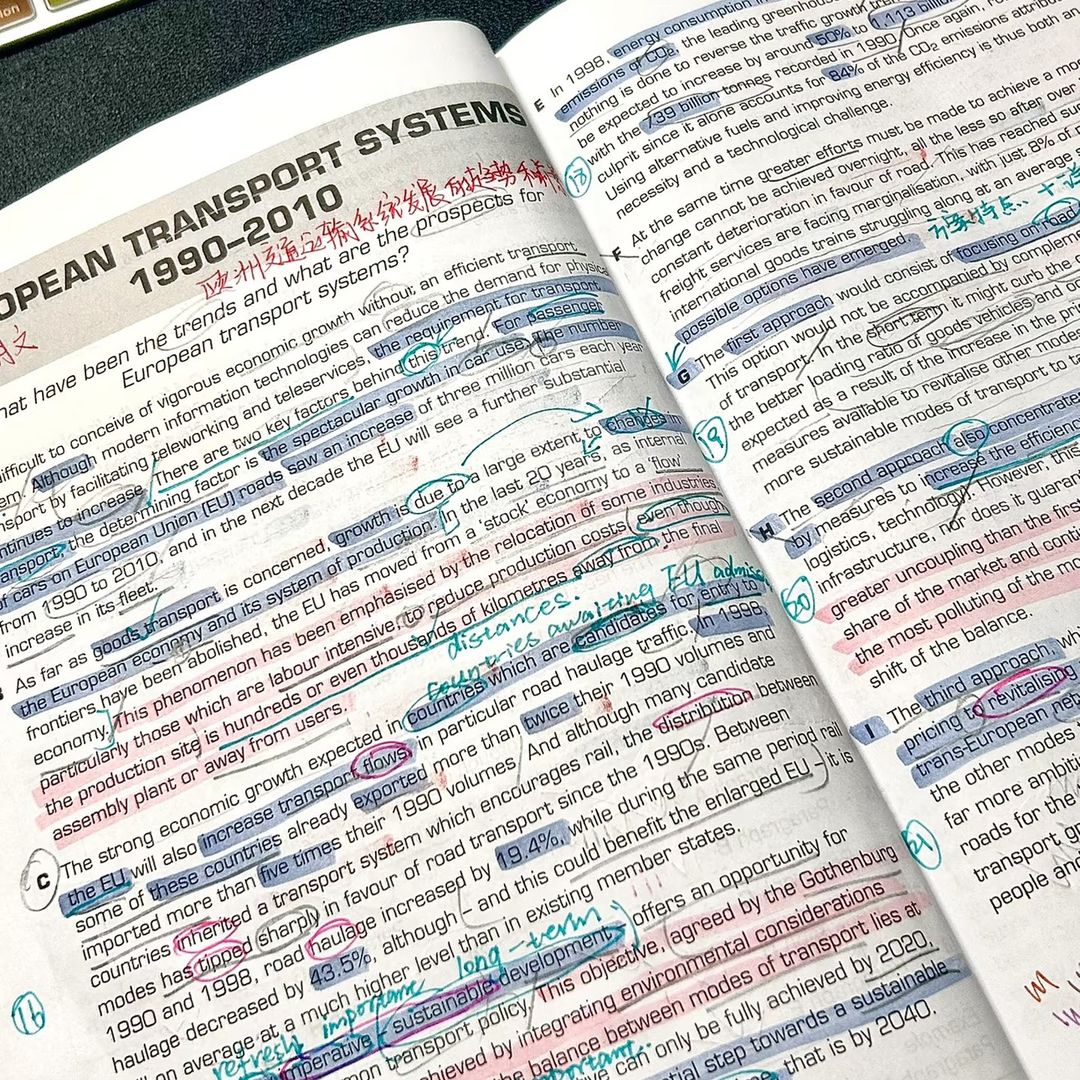 OPEAN TRANSPORT SYSTEMS
1990-2010
欧洲交通运输系统发展的趋势和
hat have been the trends and what are the prospects for
European transport systems?
difficult to conceive of vigorous economic growth without an efficient transport
em. Although modern information technologies can reduce the demand for physica
nsport by facilitating teleworking and teleservices, the requirement for transport
ntinues to increase. There are two key factors behind this trend. For passenger
ansport, the determining factor is the spectacular growth in car use. The number
of cars on European Union (EU) roads saw an increase of three million cars each year
from 1990 to 2010, and in the next decade the EU will see a further substantial
increase in its fleet.
As far as goods transport is concerned, growth is due to a large extent to changes in
the European economy and its system of production. In the last 20 years, as internal
frontiers have been abolished, the EU has moved from a 'stock' economy to a 'flow'
economy. This phenomenon has been emphasised by the relocation of some industries,
particularly those which are labour intensive to reduce production costs, even though
the production site is hundreds or even thousands of kilometres away from the final
assembly plant or away from users.
distances.
countries awaiting EU
C
The strong economic growth expected in countries which are candidates for entry to
the EU will also increase transport flows, in particular road haulage traffic. In 1998,
some of these countries already exported more than twice their 1990 volumes and
imported more than five times their 1990 volumes. And although many candidate
countries inherited a transport system which encourages rail, the distribution between
modes has tipped sharply in favour of road transport since the 1990s. Between
1990 and 1998, road haulage increased by 19.4%, while during the same period rail
haulage decreased by 43.5%, although - and this could benefit the enlarged EU - it is
on average at a much higher level than in existing member states.
long-term
16
refresh
importance
imperative sustainable development offers an opportunity for
mon transport policy. This objective, agreed by the Gothenburg
achieved by integrating environmental considerations
the balance between modes of transport lies at
ve can only be fully achieved by 2020,
tial step towards a sustainable
that is by 2040.
E
In 1998, energy consumption in
emissions of CO2, the leading greenhouse
nothing is done to reverse the traffic growth tre
be expected to increase by around 50% to 1,113 billion
with the 739 billion tonnes recorded in 1990. Once again, ro
culprit since it alone accounts for 84% of the CO2 emissions attribu
Using alternative fuels and improving energy efficiency is thus both an
necessity and a technological challenge.
F
At the same time greater efforts must be made to achieve a mod
change cannot be achieved overnight, all the less so after over
constant deterioration in favour of road. This has reached suc
freight services are facing marginalisation, with just 8% of m
international goods trains struggling along at an average
possible options have emerged.
G
The first approach would consist of focusing on road
This option would not be accompanied by complemen
of transport. In the short term it might curb the
the better loading ratio of goods vehicles and
expected as a result of the increase in the pri
measures available to revitalise other modes
more sustainable modes of transport to ta
19
H
The second approach also concentrates
by measures to increase the efficienc
logistics, technology. However, this
infrastructure, nor does it guaran
greater uncoupling than the first
share of the market and conti
the most polluting of the mo
shift of the balance.
I
The third approach, wh
pricing to revitalising
trans-European net
the other modes
far more ambiti
roads for the
transport gr
people and
21